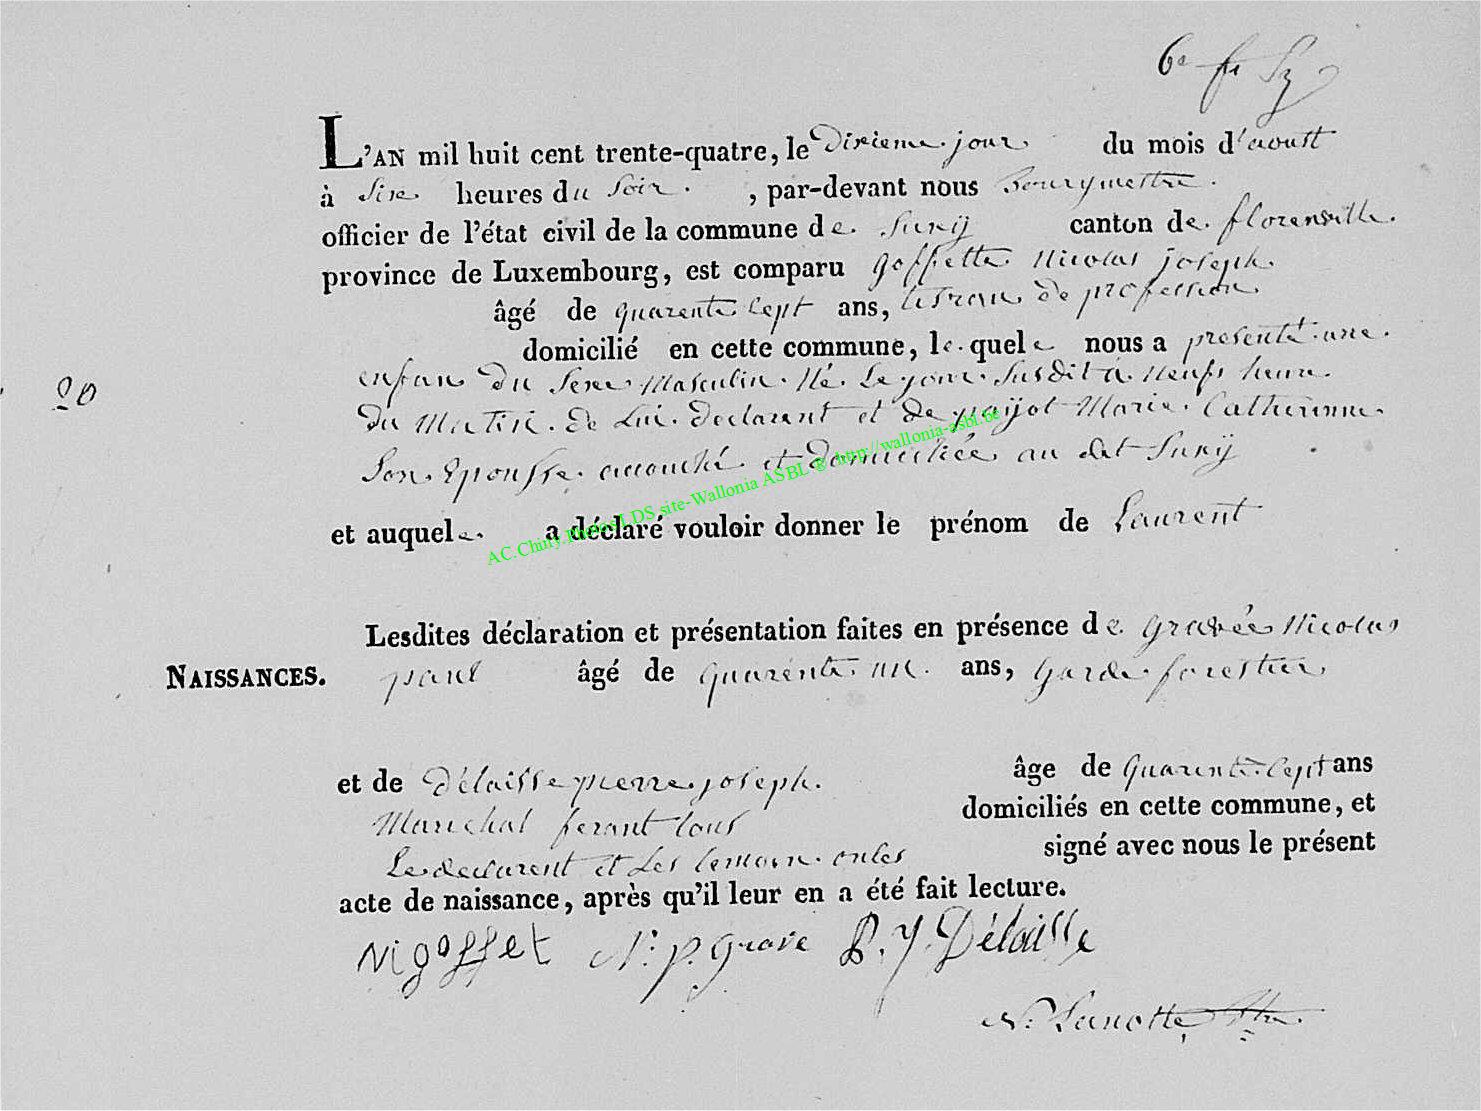 6e f
L'AN mil huit cent trente-quatre, le Dixieme jour du mois d'aoust
à Sixe heures du Soir. , par-devant nous Bourgmestre.
officier de l'état civil de la commune de. Suxÿ canton de. florenville.
province de Luxembourg, est comparu goffette Nicolas joseph.
âgé de quarente Sept ans, tisseran de profession
domicilié en cette commune, le. quele nous a presenté. une.
enfan du Sexe. Masculin. Né. Le jour. Susdit à Neufs heure.
20
du Matin. de Lui. declarent et de payjot Marie. Catherinne.
Son. Eponsse. accouché et domiciliée au dit Suxÿ
AC.Chiny.Photos LDS site-Wallonia ASBL @ http://wallonia-asbl.be
et auquele. a déclaré vouloir donner le prénom de Laurent
Lesdites déclaration et présentation faites en présence de. Gravée Nicolas
NAISSANCES. paul âgé de quarente un. ans, garde. forestier,
et de Délaisse pierre joseph. âge de quarente. Sept ans
Marechal ferant tous domiciliés en cette commune, et
Le declarent et Les temoin. ontes signé avec nous le présent
acte de naissance, après qu'il leur en a été fait lecture.
Nigoffet N: p. Grave P. J. Délaisse
N: Lanotte